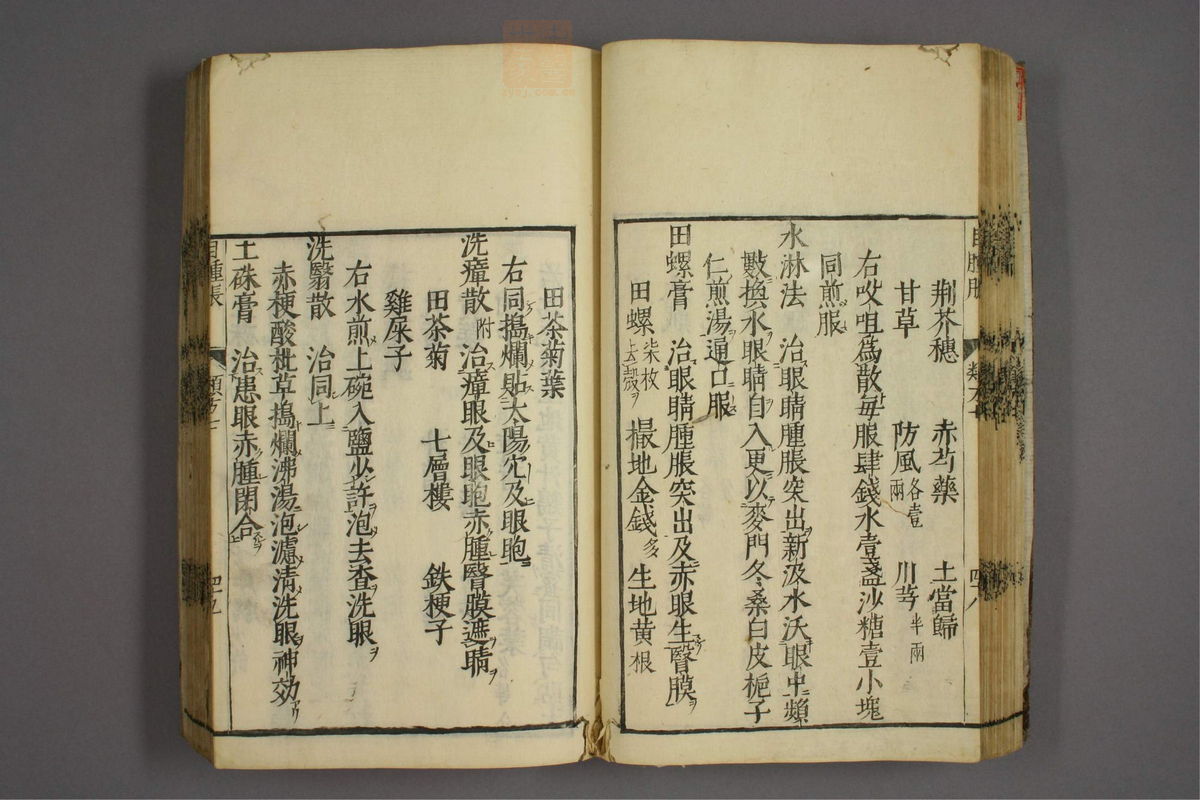 荆芥穗 赤芍藥 土當歸
甘草 防風各壹兩 川芎半兩
右㕮咀爲散每服肆錢水壹盞沙糖壹小塊
同煎服
水淋法 治眼睛腫脹突出新汲水沃眼中頻
數換水眼睛自入更以麥門冬桑白皮梔子
仁煎湯通口服
田螺膏 治眼睛腫脹突出及赤眼生瞖膜
田螺柒枚去殼 撮地金錢多 生地黄根
田茶菊葉
右同搗爛貼太陽穴及眼胞
洗瘴散附 治瘴眼及眼胞赤腫瞖膜遮睛
田茶菊 七層樓 鉄梗子
雞屎子
右水煎上碗入鹽少許泡去查洗眼
洗翳散 治同上
赤梗酸枇草搗爛沸湯泡濾清洗眼神効
土硃膏 治患眼赤腫閉合
目腫脹